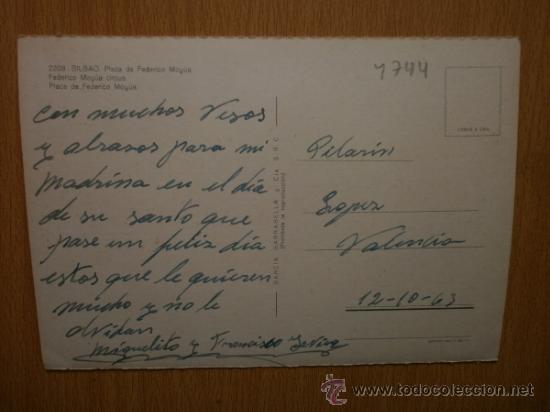 2208 - BILBAO. Plaza de Federico Moyúa
Federico Moyúa circus
Place de Federico Moyúa
1744
con muchos Vesos
y abrazos para mi
Madrina en el día
de su santo que
pase un feliz día
estos que le quieren
mucho y no le
olvidan
Miguelito y Francisco
GARCIA GARRABELLA Y Cía
(Prohibida la reproducción)
Pilarin
Lopez
Valencia
12-10-63
todocoleccion
www.todocoleccion.net